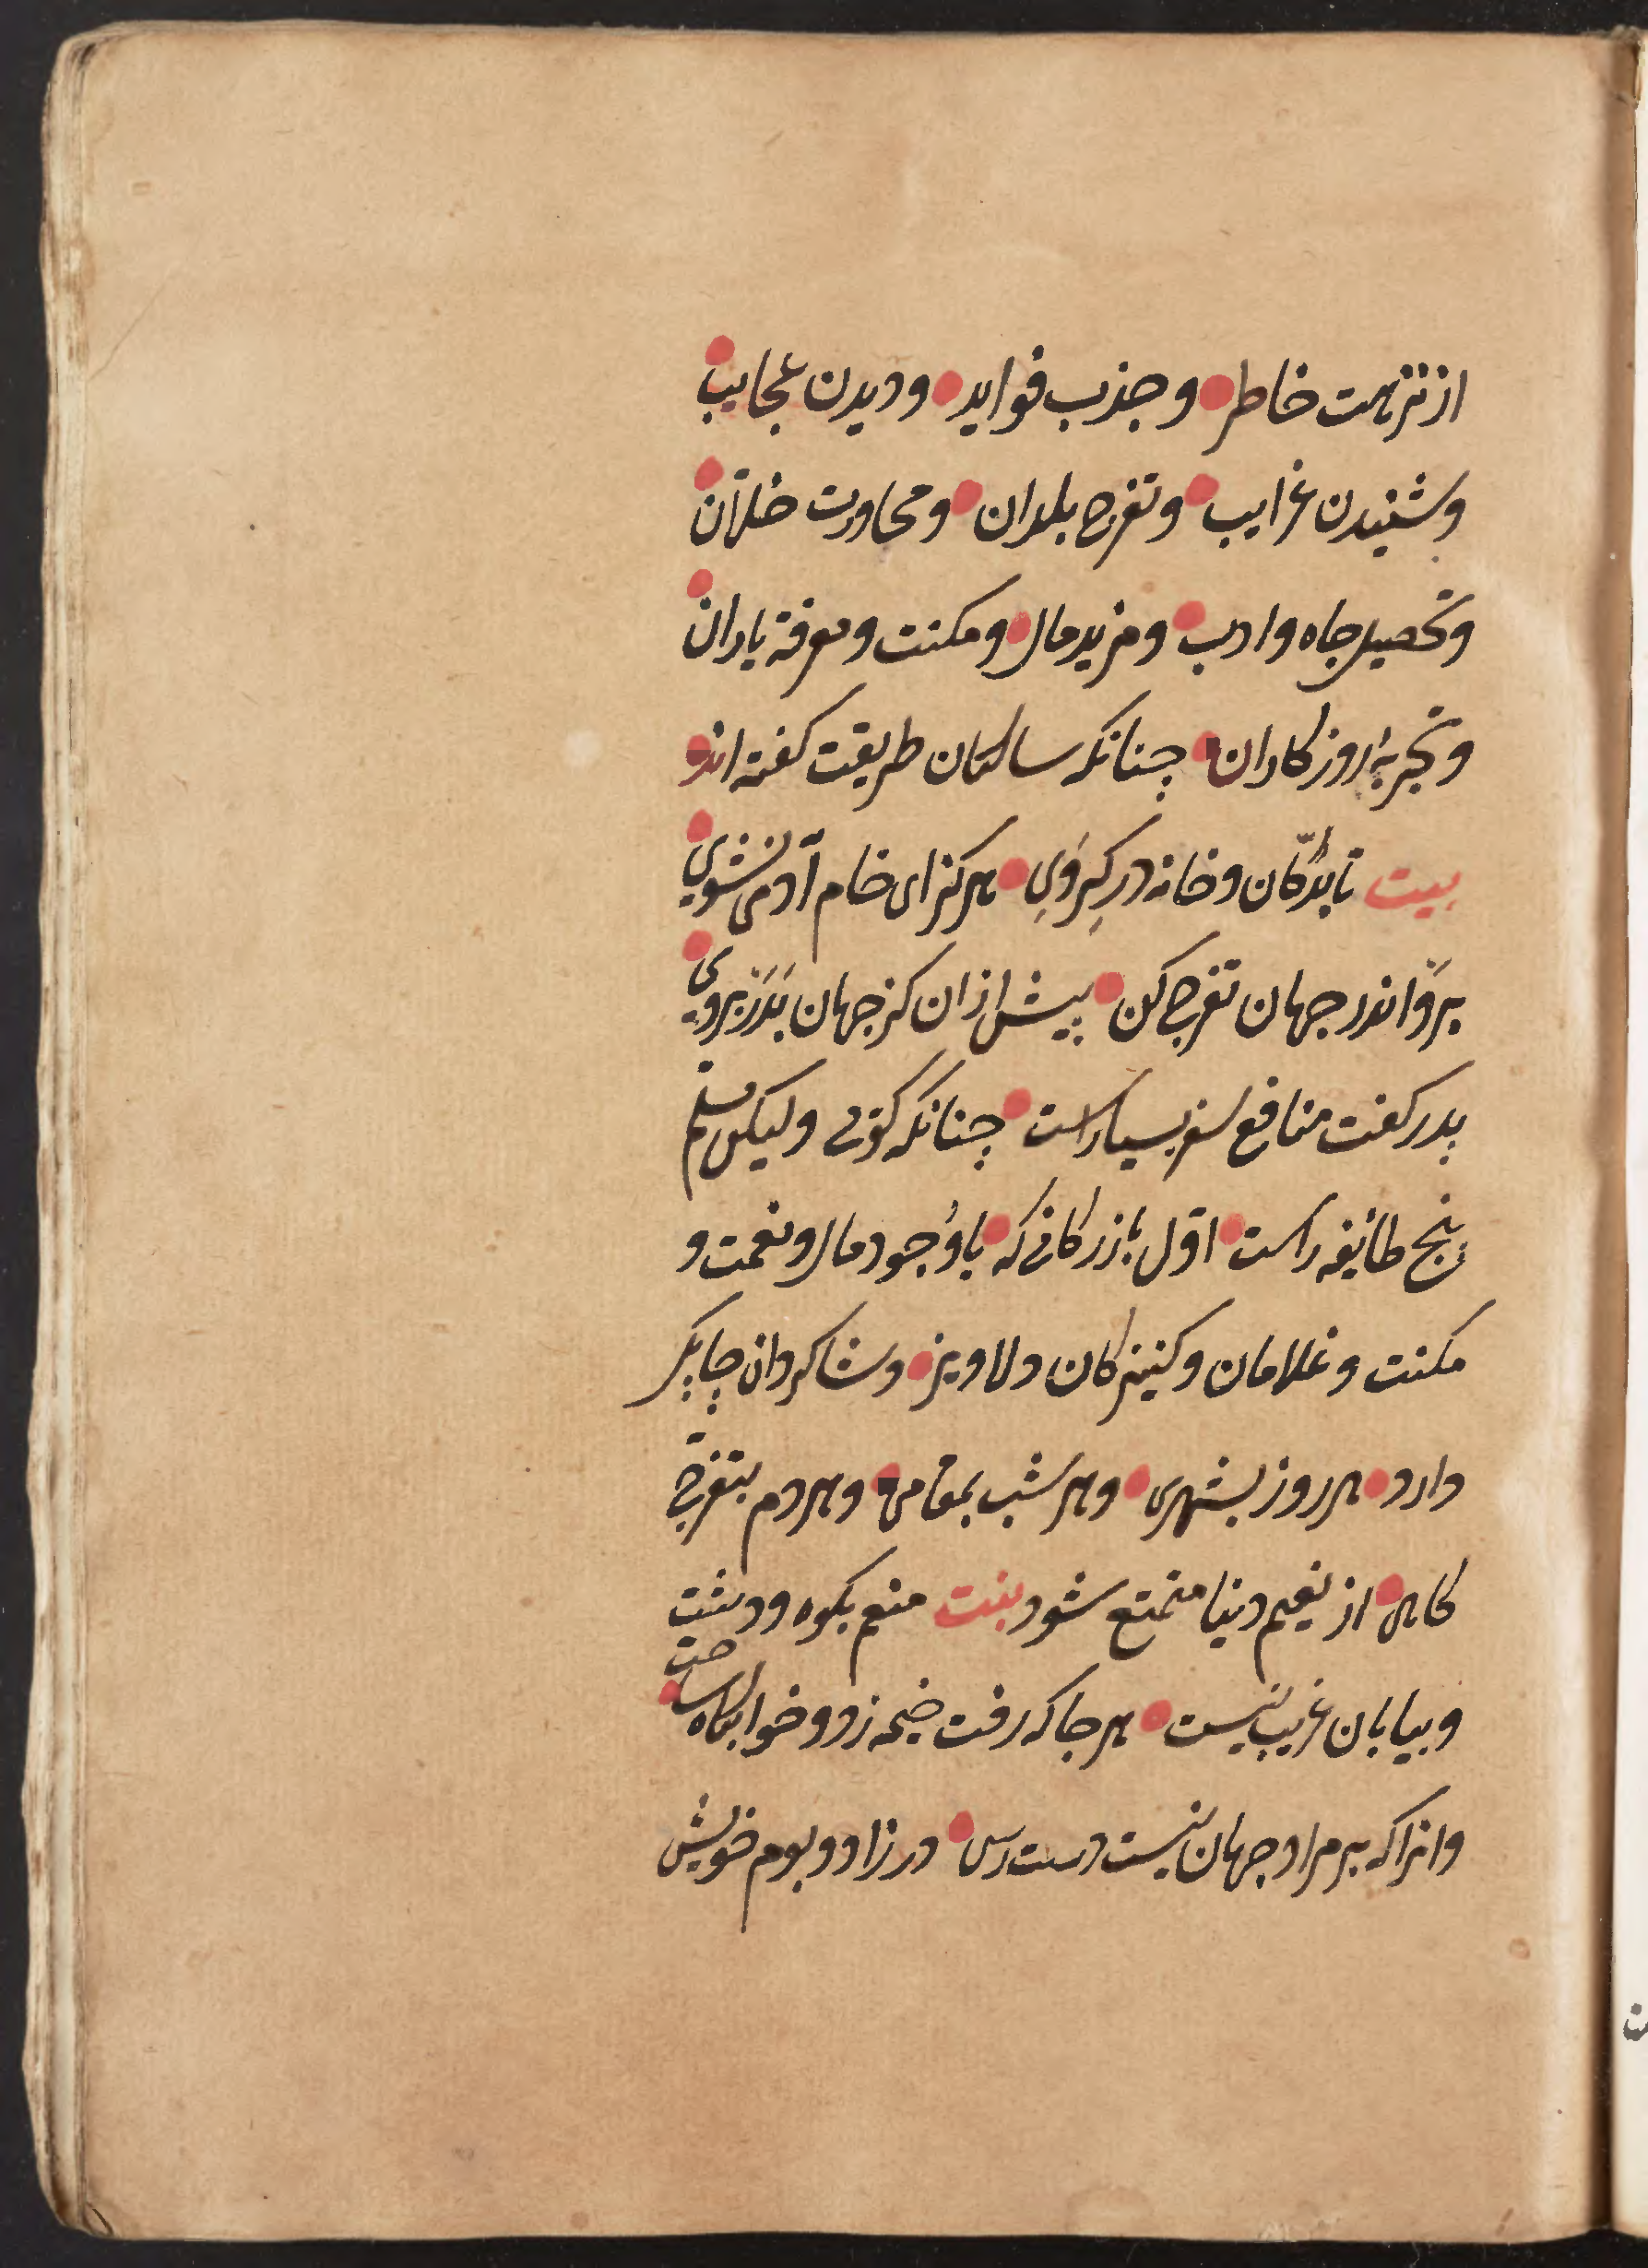 از نزهت خاطر و جذب فواید و دیدن عجایب
و شنیدن غرایب و تفرج بلدان و محاورت خلّان
و تحصیل جاه و ادب و مزید مال و مکنت و معرفة یاران
و تجربهٔ روزکاران چنانکه سالکان طریقت کفته اند
بیت تا بدکّان و خانه در کِرَوِی هرکز ای خام آدمی نشوی
برَوْ اندر جهان تفرج کن پیش از ان کز جهان بَدَرْ بروی
پدر کفت منافع سفر بسیارست چنانکه کفتی ولیکن مسلم
پنج طائفه راست اوّل بازرکانی که باوُجود مال و نعمت و
مکنت و غلامان و کنیزکان دلاویز و شاکردان چابک
دارد هر روز بشهری و هر شب بمقامی و هر دم بتفرج
کاهی از نعیم دنیا متمتع شود بیت منعم بکوه و دشت
و بیابان غریب نیست هر جا که رفت خیمه زد و خوابکاه ساخت
وانرا که بر مراد جهان نیست دست رس در زاد و بوم خویش